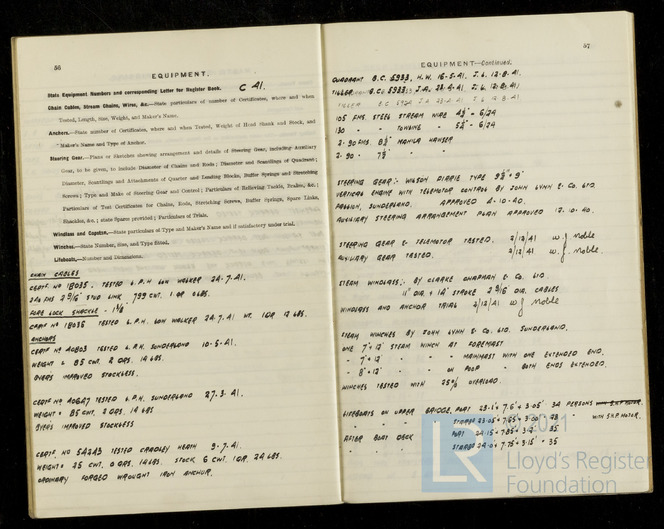 56
EQUIPMENT.
State Equipment Numbers and corresponding Letter for Register Book. C A1.
Chain Cables, Stream Chains, Wires, &c.—State particulars of number of Certificates, where and when
Tested, Length, Size, Weight, and Maker's Name.
Anchors.—State number of Certificates, where and when Tested, Weight of Head Shank and Stock, and
Maker's Name and Type of Anchor.
Steering Gear.—Plans or Sketches showing arrangement and details of Steering Gear, including Auxiliary
Gear, to be given, to include Diameter of Chains and Rods; Diameter and Scantlings of Quadrant;
Diameter, Scantlings and Attachments of Quarter and Leading Blocks, Buffer Springs and Stretching
Screws; Type and Make of Steering Gear and Control; Particulars of Relieving Tackle, Brakes, &c.;
Particulars of Test Certificates for Chains, Rods, Stretching Screws, Buffer Springs, Spare Links,
Shackles, &c.; state Spares provided; Particulars of Trials.
Windlass and Capstan.—State particulars of Type and Maker's Name and if satisfactory under trial.
Winches.—State Number, Size, and Type fitted.
Lifeboats.—Number and Dimensions.
CHAIN CABLES
CERTF. NO 18035. TESTED L.P.H. LOW WALKER 24.7.41.
FMS 2 9/16" STUD LINK. 799 CWT. 1 QR 6 LBS.
LOCK SHACKLE -
CERTF NO 18036 TESTED L.P.H. LOW WALKER 24.7.41 WT. 1 QR 12 LBS.
ANCHORS
CERTIF NO 40803 TESTED L.P.H. SUNDERLAND 10-5-41.
WEIGHT = 85 CWT. 2 QRS. 14 LBS.
BYERS IMPROVED STOCKLESS.
CERTF NO TESTED L.P.H. SUNDERLAND 27.3.41.
WEIGHT = 85 CWT. 2 QRS. 14 LBS
BYERS IMPROVED STOCKLESS
CERTF. NO 54243 TESTED CRADLEY HEATH 3-7-41.
WEIGHT = 25 CWT. 0 QRS. 14 LBS. STOCK 6 CWT. 1 QR. 24 LBS.
ORDINARY FORGED WROUGHT IRON ANCHOR.
57
EQUIPMENT—Continued.
QUADRANT B.C. 5933, H.W. 16-5-41. J.L. 12.8.41.
TILLER. B.C. 5933 J.A. 23.4.41 J.L. 12.8.41
105 FMS. STEEL STREAM WIRE 4½" - 6/24
130 " " TOWLINE - 5¼" - 6/24
2-90 FMS. 8½" MANILA HAWSER
2-90 - 7½" " "
STEERING GEAR:- WILSON PIRRIE TYPE 9½" × 9"
VERTICAL ENGINE WITH TELEMOTOR CONTROL BY JOHN LYNN & Co. LTD.
PALLION, SUNDERLAND. APPROVED 4.10.40.
AUXILIARY STEERING ARRANGEMENT PLAN APPROVED 17.10.40.
STEERING GEAR & TELEMOTOR TESTED. 2/12/41 W.J. Noble
AUXILIARY GEAR TESTED. 2/12/41 W.J. Noble.
STEAM WINDLASS:- BY CLARKE CHAPMAN & Co. LTD.
11" DIA. × 14" STROKE 2 9/16 DIA. CABLES
WINDLASS AND ANCHOR TRIAL 2/12/41 W.J. Noble
STEAM WINCHES BY JOHN LYNN & Co. LTD. SUNDERLAND.
ONE 7" × 12" STEAM WINCH AT FOREMAST
" 7" × 12" " " MAINMAST WITH ONE EXTENDED END.
" 8" × 12" " ON POOP - BOTH ENDS EXTENDED.
WINCHES TESTED WITH 25% OVERLOAD.
LIFEBOATS ON UPPER BRIDGE, PORT 23.1' × 7.6' × 3.05' 32 PERSONS WITH S.H.P. MOTOR.
STARBD 23.05 × 7.65 × 3.00 WITH 5 H.P MOTOR.
AFTER BOAT DECK PORT 24.15 × 7.85 × 35
STARBD 24.0 × 7.75 × 3.15' 35
LR 2021
Lloyd's Register
Foundation